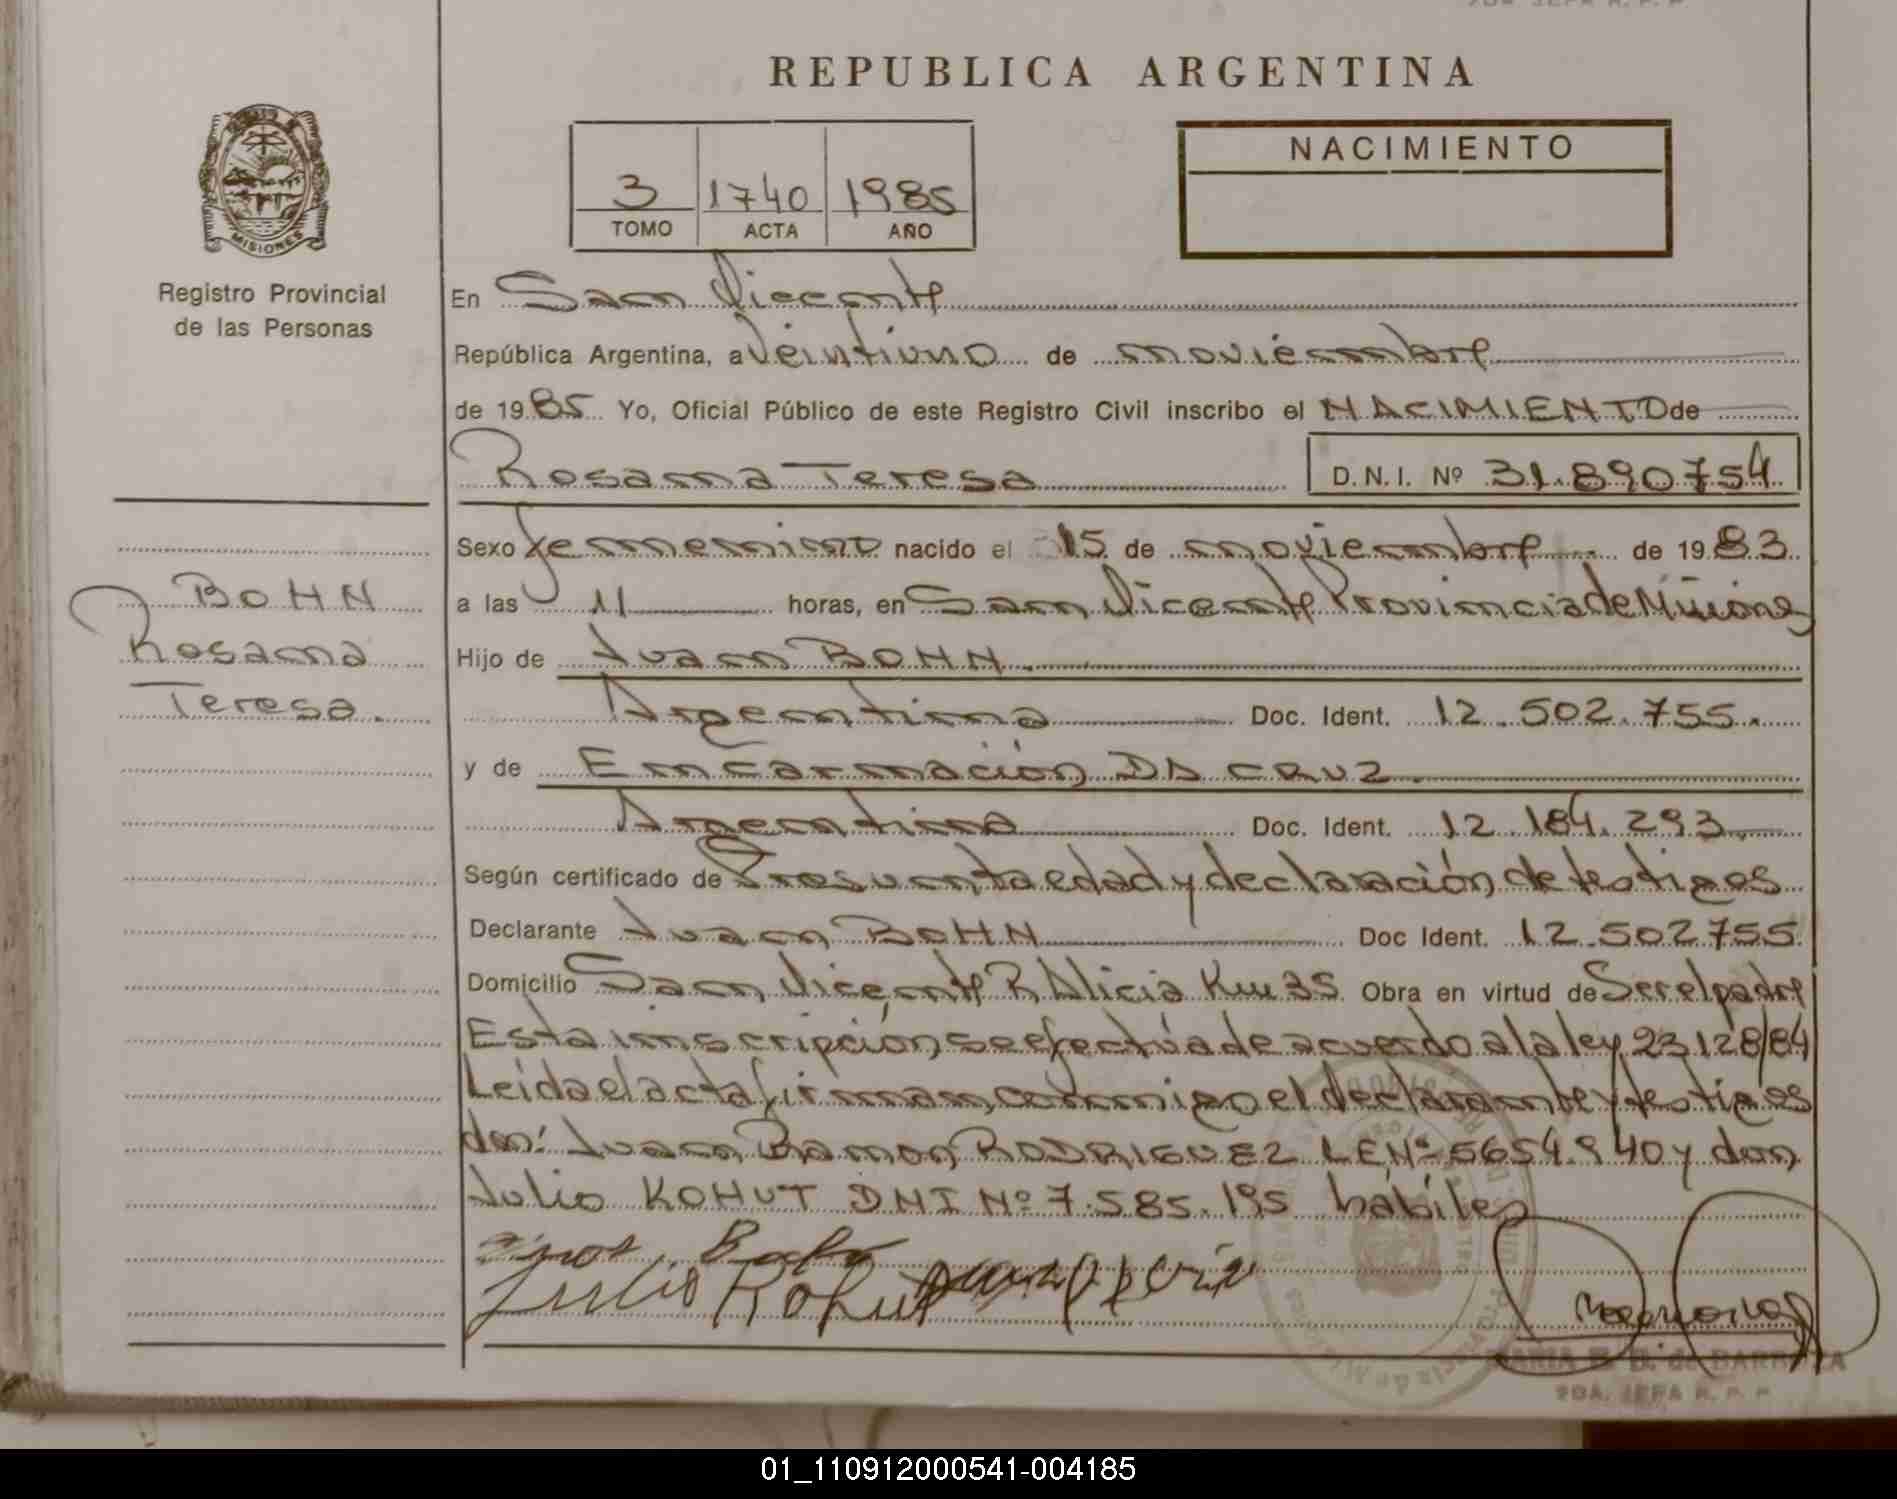 REPUBLICA ARGENTINA
MISIONES
Registro Provincial
de las Personas
3 1740 1985
TOMO ACTA AÑO
NACIMIENTO
En San Vicente
República Argentina, a Veintiuno de noviembre
de 1985 Yo, Oficial Público de este Registro Civil inscribo el NACIMIENTO de
Rosana Teresa D.N.I. Nº 31.890754
Sexo femenino nacido el 15 de noviembre de 1983
a las 11 horas, en San Vicente Provincia de Misiones
Hijo de Juan BOHN.
Argentina Doc. Ident. 12.502.755.
y de Encarnación DA CRUZ.
Argentina Doc. Ident. 12.184.293
Según certificado de Presunta edad y declaración de testigos
Declarante Juan BOHN Doc Ident. 12.502.755
Domicilio San Vicente R Alicia Km 35 Obra en virtud de Ser el padre
Esta inscripción se efectúa de acuerdo a la ley 23128/84
Leida el acta firman conmigo el declarante y testigos
don: Juan Ramon RODRIGUEZ LE Nº 5654.940 y don
Julio KOHUT DNI Nº 7.585.195 hábiles
BOHN
Rosana
Teresa.
Julio Kohut
MARIA E. B. de BARBOZA
2DA. JEFA R. P. P.
01_110912000541-004185